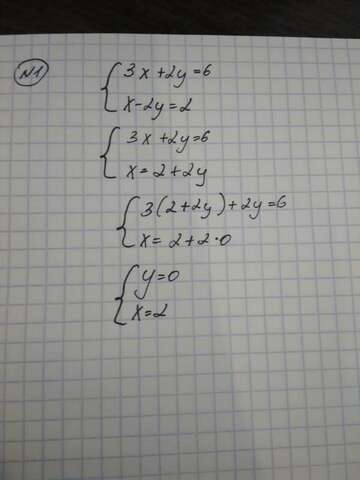 №1
3x+2y=6
x-2y=2
3x+2y=6
x=2+2y
3(2+2y)+2y=6
x=2+2·0
y=0
x=2